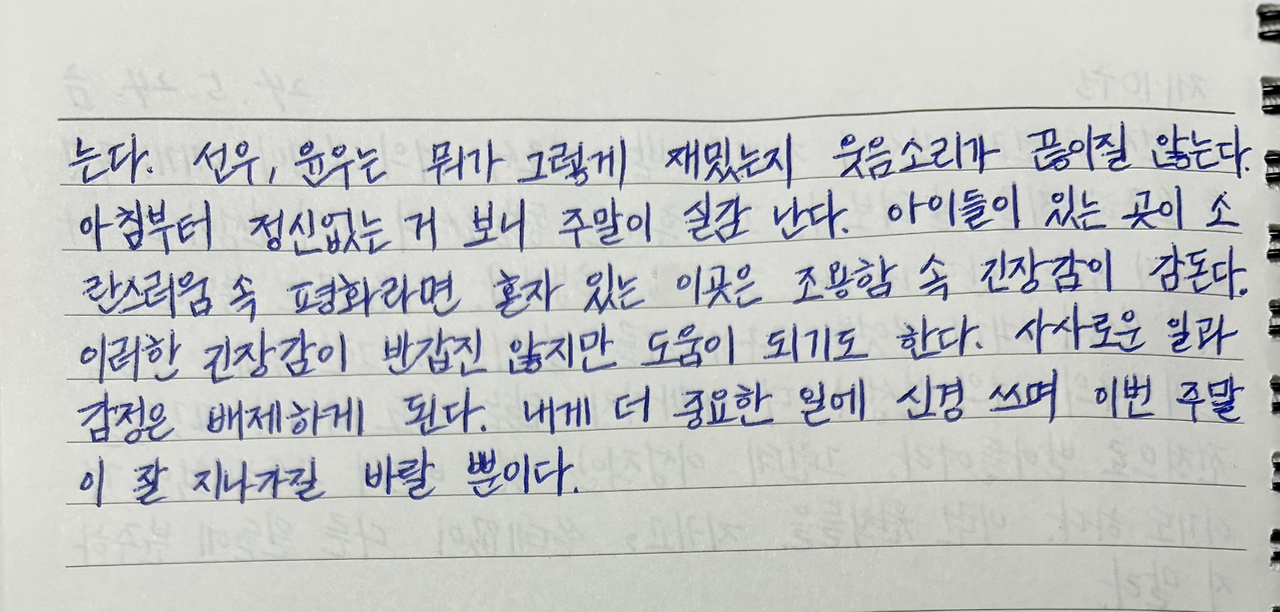 는다. 선우, 윤우는 뭐가 그렇게 재밌는지 웃음소리가 끊이질 않는다.
아침부터 정신없는 거 보니 주말이 실감 난다. 아이들이 있는 곳이 소
란스러움 속 평화라면 혼자 있는 이곳은 조용함 속 긴장감이 감돈다.
이러한 긴장감이 반갑진 않지만 도움이 되기도 한다. 사사로운 일과
감정은 배제하게 된다. 내게 더 중요한 일에 신경 쓰며 이번 주말
이 잘 지나가길 바랄 뿐이다.